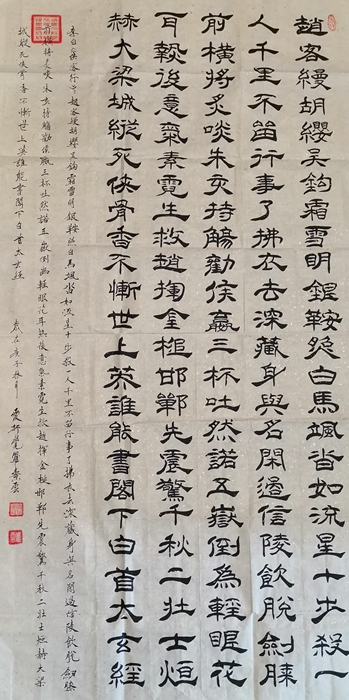 趙客縵胡纓吳鉤霜雪明銀鞍照白馬颯沓如流星十步殺一
人千里不留行事了拂衣去深藏身與名閑過信陵飲脫劍膝
前橫將炙啖朱亥持觴勸侯嬴三杯吐然諾五嶽倒為輕眼花
耳熱後意氣素霓生救趙揮金槌邯鄲先震驚千秋二壯士烜
赫大梁城縱死俠骨香不慚世上英誰能書閣下白首太玄經
李白俠客行趙客縵胡纓吳鉤霜雪明銀鞍照白馬颯沓如流星十步殺一人千里不留行事了拂衣去深藏身與名閑過信陵飲脫劍膝
前橫將炙啖朱亥持觴勸侯嬴三杯吐然諾五嶽倒為輕眼花耳熱後意氣素霓生救趙揮金槌邯鄲先震驚千秋二壯士烜赫大梁
城縱死俠骨香不慚世上英誰能書閣下白首太玄經 歲在庚子